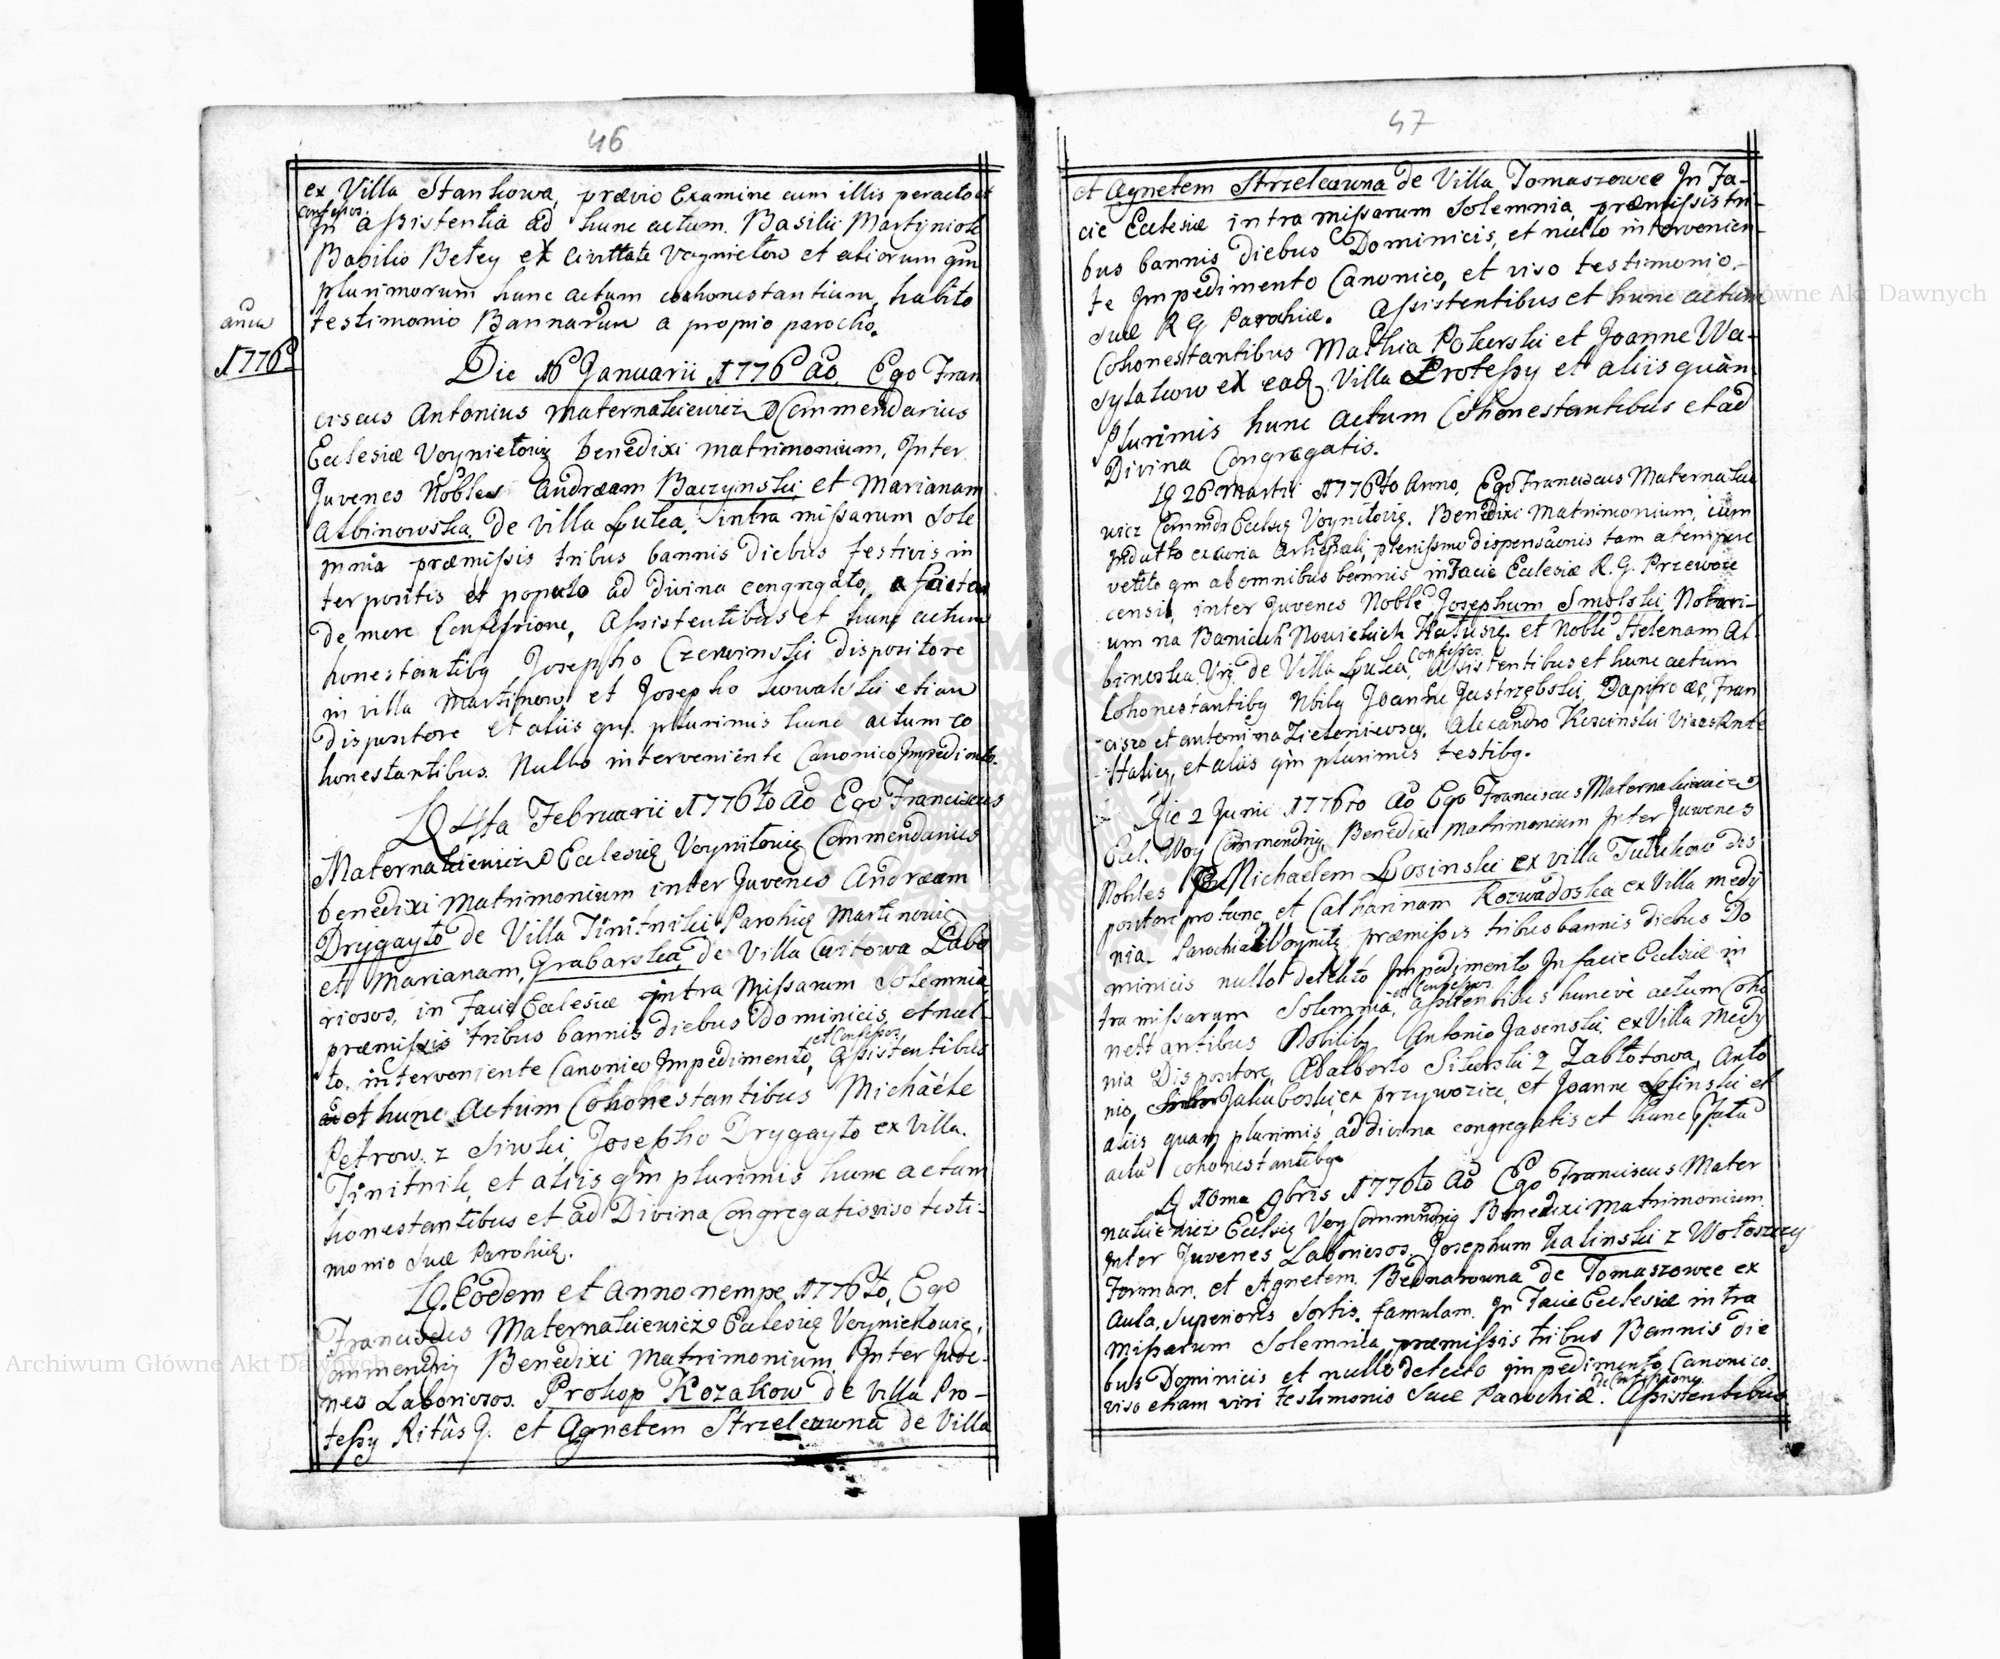 46
ex Villa Stankowa, prævio Examine cum illis peracto et
confessos
In assistentia ad hunc actum. Basilii Martyniok
Basilio Betey ex Civittate Voyniełow et aliorum qm
plurimorum hunc actum cohonestantium, habito
testimonio Bannarum a propio parocho.
anu
1776
Die 16 Januarii 1776 ao. Ego Fran
ciscus Antonius Maternakiewicz Commendarius
Eclesiæ Voyniełowię benedixi matrimonium, Inter
Juvenes Nobles Andræam Baczynski et Marianam
Albinowska de villa Luka. intra missarum Sole
mnia præmissis tribus bannis diebus festivis in
terpositis et populo ad divina congregato, a facta
de more Confessione, Assistentibus et hunc actum
honestantibq Josepho Czerwinski dispozitore
in villa Martinow et Josepho Kowalski etiam
dispozitore et aliis qm. plurimis hunc actum co
honestantibus. Nullo interveniente Canonico Impedimento.
D 4ta Februarii 1776to ao Ego Franciscus
Maternakiewicz Eclesię Voyniłowię Commendarius
benedixi Matrimonium inter Juvenes Andræam
Drygayło de Villa Tinitniki Parohię Martinowię
et Mariannam, Grabarska, de Villa Czitowa Labo
riosos, in Facie Eclesiæ intra Missarum Solemnia,
præmissis tribus bannis diebus Dominicis et nul-
et Confessos
lo interveniente Canonico Impedimento, Assistentibus
et hunc Actum Cohonestantibus Michaele
Petrow z Siwki, Josepho Drygayło ex Villa.
Tinitnik, et aliis qm plurimis hunc actum
honestantibus et ad Divina Congregatis viso testi-
monio Suæ Parohię.
D. Eodem et Anno nempe 1776to, Ego
Franciscus Maternakiewicz Eclesię Voyniełowię,
Commendrij Benedixi Matrimonium Inter Juve-
nes Laboriosos. Prokop Kozakow de Villa Pro-
tessy Ritûs G. et Agnetem Strzelcowna de Villa
47
et Agnetem Strzelcowna de Villa Tomaszowce In Fa-
cie Eclesiæ intra missarum Solemnia, præmissis tri-
bus bannis diebus Dominicis, et nullo intervenien-
te Impedimento Canonico, et viso testimonio
suæ R G Parohiæ. Assistentibus et hunc actum
Cohonestantibus Mathia Pokerski et Joanne Wa-
sylakow ex ead. Villa Protessy et aliis quàm
Plurimis hunc actum Cohonestantibus et ad
Divina Congregatis.
D 26 Martii 1776to Anno. Ego Franciscus Maternakie
wicz Commdr Eclsię Voyniłowię. Benedixi Matrimonium, cum
Indulto ex curia Archiepali, plenissme dispensaonis tam a tempore
vetito qm ab omnibus bannis in Facie Eclesiæ R. G. Przewozie
censis, inter Juvenes Noble Josephum Smolski Notari-
um na Baniach Nowickich Kałusię. et Noble Helenam Al
Confessos
binoska Virg de Villa Luka, Assistentibus et hunc actum
Cohonestantibq Nbilq Joanne Jastrzębski, Dapifro ac, Fran
cisco et antonino Zieleniewscy, Alexandro Koscinski Vicesknte
Halicz, et aliis qm plurimis testibq.
Die 2 Junii 1776to Ao Ego Franciscus Maternakiewicz
Ecl. Woy Commendrij, Benedixi Matrimonium Inter Juwenes
Nobles Michaelem Łosinski ex villa Tutukow dis
positore pro tunc, et Catharinam Rozwadoska ex Villa Medy
nia. Parochia Voyniłę præmissis tribus bannis diebus Do
minicis nullo detecto Impedimento In facie Eclsiæ in
et Confessos
tra missarum Solemnia, Assitentibus huncve actum Coho
nestantibus Nobilibq Antonio Jasenski, ex Villa Medy
nia Dispozitore, Adalberto Sikorski z Zabłotowa, Anto
nio, Jakuboski, ex przywozice, et Joanne Lesinski et
aliis quam plurimis, ad divina congregatis et hunc
actu cohonestantibq.
D 10ma 9bris 1776to Ao Ego Franciscus Mater
nakiewicz Eclsię Voy Commndrij Benedixi Matrimonium
Inter Juvenes Laboriosos. Josephum Kalinski z Wołoszczy
Forman. et Agnetem. Bednarowna de Tomaszowce ex
Aula, Superioris Sortis. famulam. In Facie Eclesiæ intra
missarum Solemnia, præmissis tribus Bannis die
bus Dominicis et nullo detecto impedimento Canonico.
de Confessione
viso etiam viri testimonio Suæ Parochiæ. Assistentibus
Archiwum Główne Akt Dawnych
Archiwum Główne Akt Dawnych